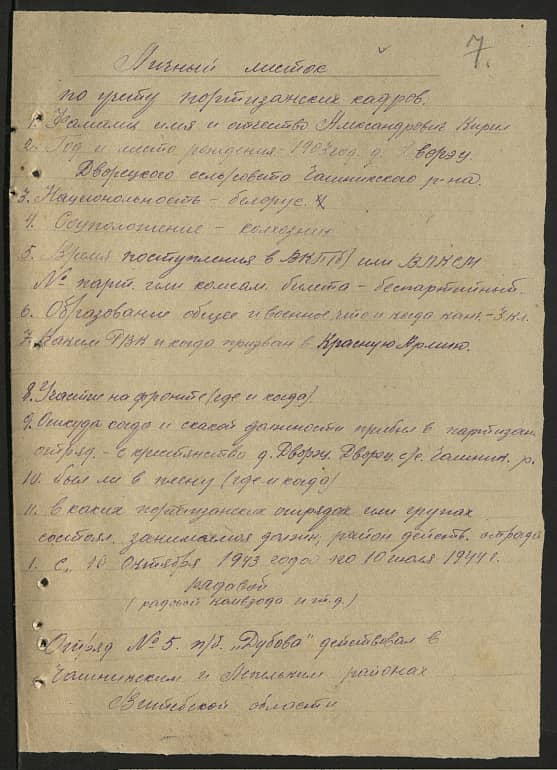 7.
Личный листок
по учету портизанских кадров.
1. Фамалия имя и отчество Александрович Кирил
2. Год и место рождения - 190 год. д. Дворэц.
Дворецкого сельсовета Чашникского р-на.
3. Национольность - белорус.
4. Соцположение - колхозник
5. Время поступления в ВКП(б) или ВЛКСМ
№ парт. или комсам. билета - беспартийный.
6. Образование общее и военное, что и когда конч. - 3 кл.
7. Каким РВК и когда призван в Красную Армию.
8. Участие на фронте (где и когда)
9. Откуда когда и скакой должности прибыл в партизан.
отряд. - с кристянство д. Дворэц. Дворэц. с/с. Чашник. р.
10. был ли в плену (где и когда)
11. в каких портизанских отрядах или групах
состоял, занимаемая должн, район действ. отряда
1. с, 10 октября 1943 года по 10 июля 1944 г.
радавой
(радовой комвзода и т.д.)
Отряд № 5. п/б. „Дубова" действовал в
Чашникским и Лепельким районах
Витебской области